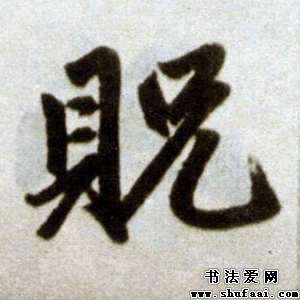 貺
书法爱网
www.shufaai.com